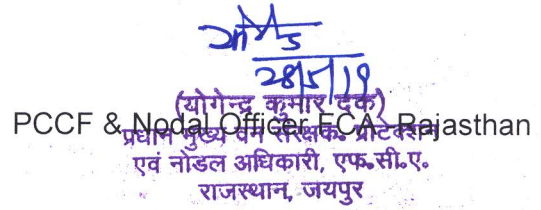 28/5/19
(योगेन्द्र कुमार दक)
PCCF & Nodal Officer FCA, Rajasthan
प्रधान मुख्य वन संरक्षक, प्रोटेक्शन
एवं नोडल अधिकारी, एफ.सी.ए.
राजस्थान, जयपुर